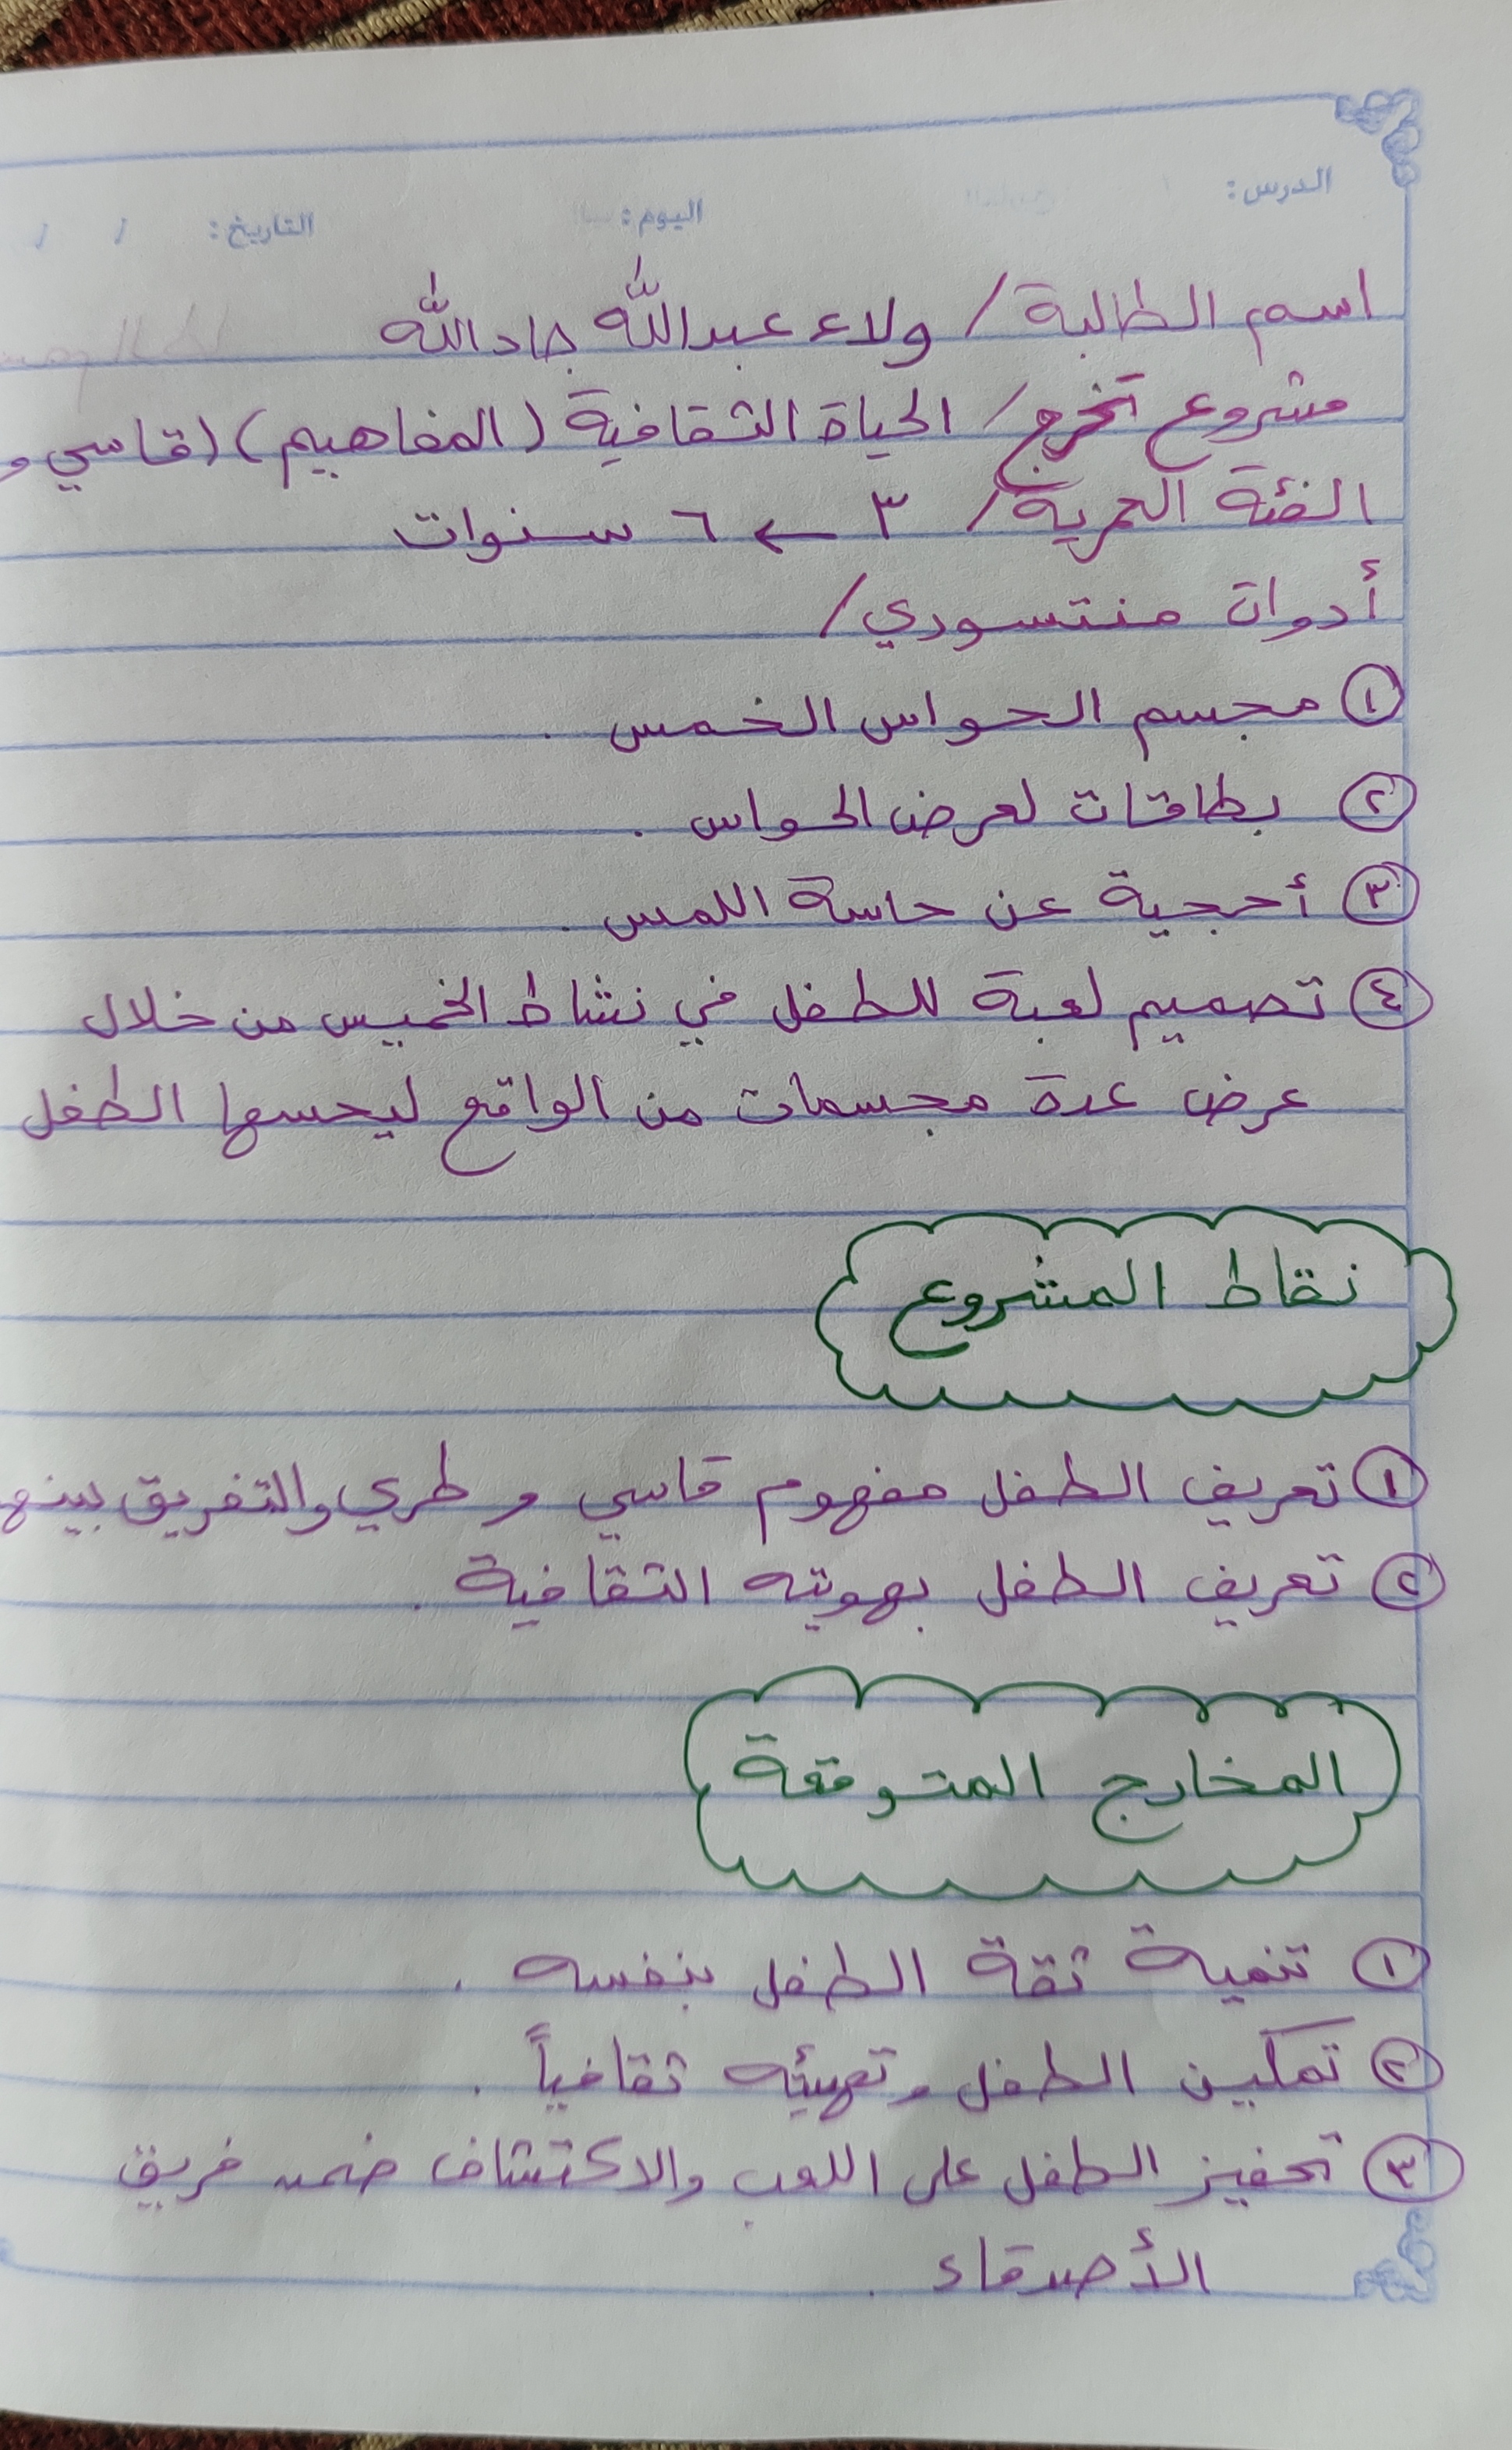 الدرس:
اليوم:
التاريخ: / /
اسم الطالبة / ولاء عبدالله جادالله
مشروع تخرج / الحياة الثقافية (المفاهيم) (قاسي و
الفئة العمرية / ٣ ← ٦ سنوات
أدوات منتسوري /
① مجسم الحواس الخمس .
② بطاقات لعرض الحواس .
③ أحجية عن حاسة اللمس .
④ تصميم لعبة للطفل في نشاط الخميس من خلال
عرض عدة مجسمات من الواقع ليحسها الطفل
نقاط المشروع
① تعريف الطفل مفهوم قاسي و طري والتفريق بينه
② تعريف الطفل بهويته الثقافية .
المخارج المتوقعة
① تنمية ثقة الطفل بنفسه .
② تمكين الطفل وتهيئه ثقافياً .
③ تحفيز الطفل على اللعب والاكتشاف ضمن فريق
الأصدقاء .